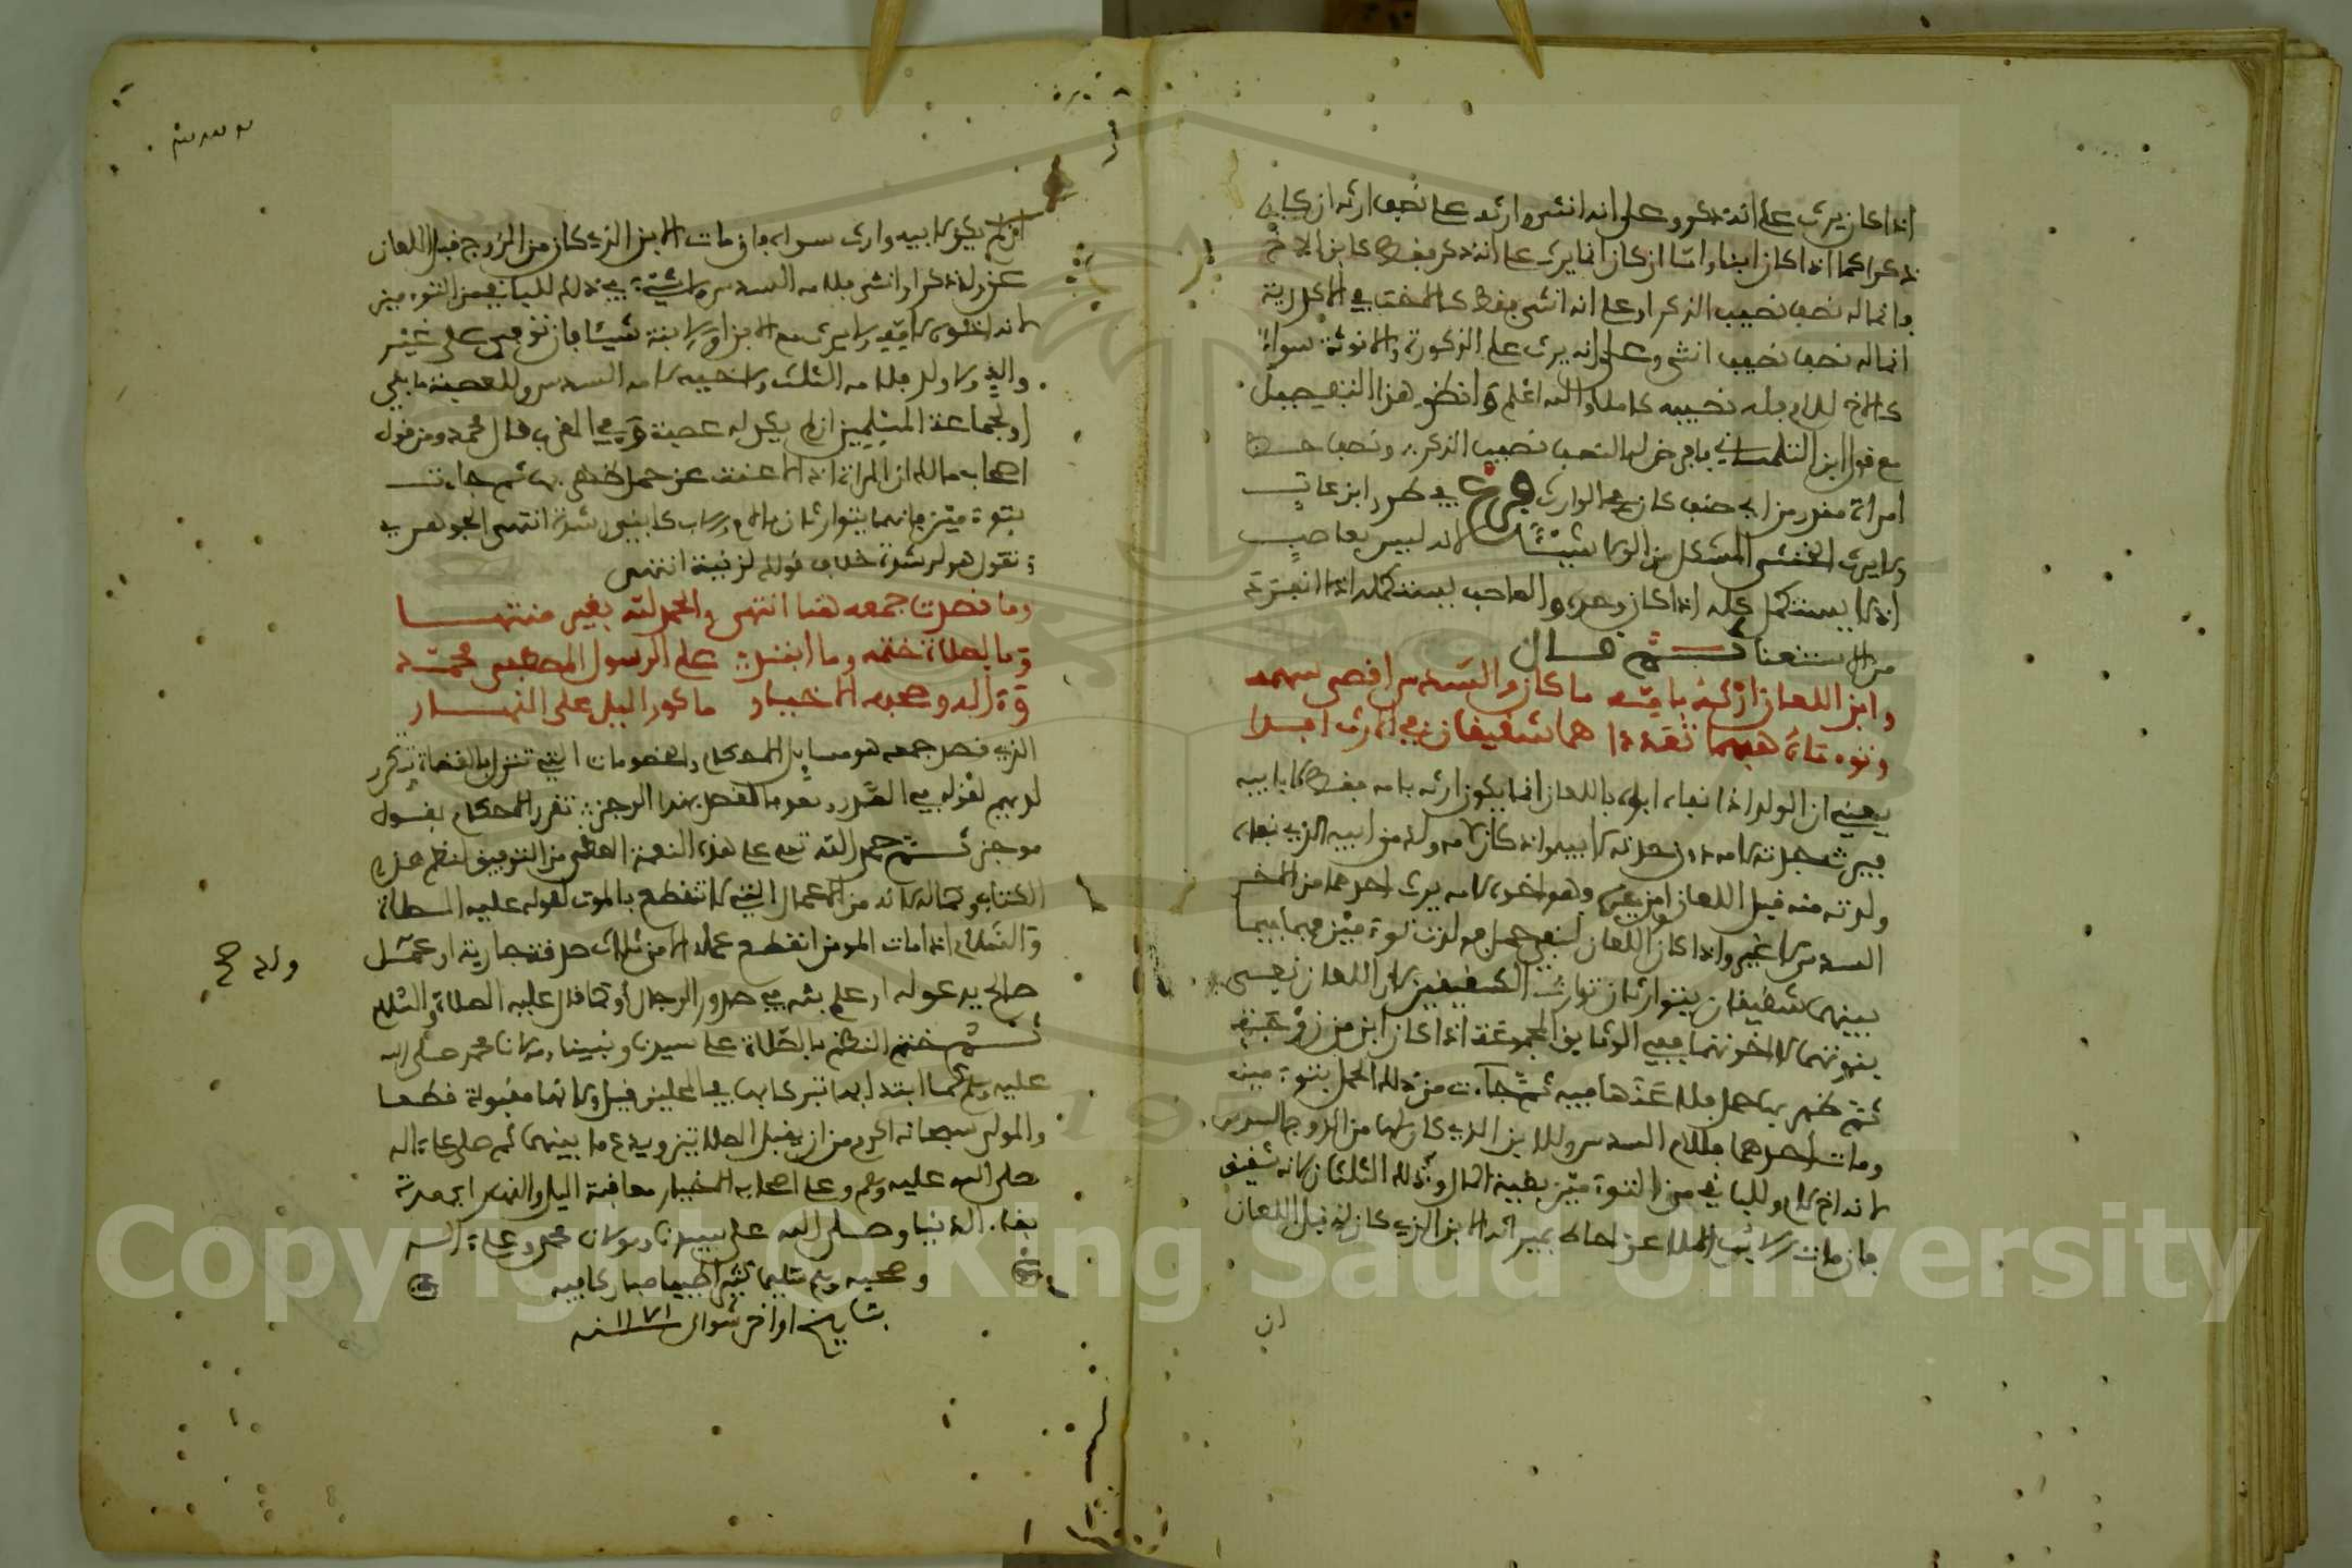 اذا كان يرث على انه ذكر وعلى انه انثى وارثه على نصف ارثه ان كان
ذكرا كما اذا كان ابنا واما ان كان انما يرث على انه ذكر فقط كابن الاخ
فانما له نصف نصيب الذكر او على انه انثى فقط كالاخت في الاكدرية
انما له نصف نصيب انثى وعلى انه يرث على الذكورة والانوثة سواء
كالاخ للام فله نصيبه كاملا والله اعلم وانظر هذا التفصيل
مع قول ابن التلمساني بافرض لها النصف نصيب الذكر ونصف حظ
امراة مقدر من اي صنف كان في الوارث فرع في طرر ابن عات
ولا يرث الخنثى المشكل من الولا شيئا لانه ليس بعاصب
اذ لا يستكمل كله اذا كان وحده والعاصب يستكمله اذا انفرد
من الا ستغنا ثم قال
وابن اللعان ارثه بامه ما كان والسدس اقصى سهمه
وتوءمان هبهما تعددا هما شقيقان في الارث ابدا
يعني ان الولد اذا نفاه ابوه باللعان انما يكون ارثه بامه فقط لا بابيه
ولدته منه قبل اللعان وهو اخوه لامه يرث احدهما من الاخر
السدس لا غير واذا كان اللعان لنفي حمل فولدت توءمين فهما فيما
بينهما شقيقان يتوارثان توارث الشقيقين لان اللعان نفى
بنوتهما لا اخوتهما ففي الوثايق المجموعة اذا كان ابن من زوجته
ثم ظهر بها حمل فلاعنها فيه ثم جاءت من ذلك الحمل بتوءمين
ومات احدهما فللام السدس وللابن الذي كان لها من الزوج السدس
لانه اخ لام وللباقي من التوءمين بقية المال وذلك الثلثان لانه شقيق
فان مات الملاعن احاط بميراثه الابن الذي كان له قبل اللعان
ان
ان لم يكن لابيه وارث سواه فان مات الابن الذي كان من الزوج قبل اللعان
عن ولد ذكر او انثى فلامه السدس ولا شيء في ذلك للباقي من التوءمين
لانه اخوه لامه ولا يرث مع الابن او الابنة شيئا فان توفي على غير
والد ولا ولد فلامه الثلث ولاخيه لامه السدس وللعصبة ما بقي
او لجماعة المسلمين ان لم يكن له عصبة وفي المقرب قال محمد ومن قول
اصحاب مالك ان المراة اذا لاعنت عن حمل ظهر بها ثم جاءت
بتوءمين فانهما يتوارثان بالام والاب كابني رشدة انتهى الجوهري
تقول هو لرشدة خلاف قولك لزنية انتهى
وما قصدت جمعه هنا انتهى والحمد لله بغير منتهى
وبالصلاة ختمه وما ابتدى على الرسول المصطفى محمد
وءاله وصحبه الاخيار ما كور الليل على النهار
الذي قصد جمعه هو مسايل الاحكام والخصومات التي تنزل بالقضاة وتكرر
لديهم لقوله في الصدر وبعد فالقصد بهذا الرجز تقرير الاحكام بقول
موجز ثم حمد الله تعلى على هذه النعمة العظمى من التوفيق لنظم هذا
الكتاب وكماله لانه من الاعمال التي لا تنقطع بالموت لقوله عليه الصلاة
والسلام اذا مات المومن انقطع عمله الا من ثلاث صدقة جارية او عمل
صالح يدعو له او علم بثه في صدور الرجال او كما قال عليه الصلاة والسلام
ولد صح
ثم ختم النظم بالصلاة على سيدنا ونبينا ومولانا محمد صلى الله
عليه وسلم كما ابتدا بها تبركا بها في المحلين قيل ولانها مقبولة قطعا
والمولى سبحانه اكرم من ان يقبل الصلاتين ويدع ما بينهما ثم صلى على ءاله
صلى الله عليه وسلم وعلى اصحابه الاخيار معاقبة الليل والنهار اي مدة
بقاء الدنيا وصلى الله على سيدنا ومولانا محمد وعلى ءاله
وصحبه وسلم تسليما كثيرا طيبا مباركا فيه
بتاريخ اواخر شوال سنة ١١٧١
Copyright © King Saud University